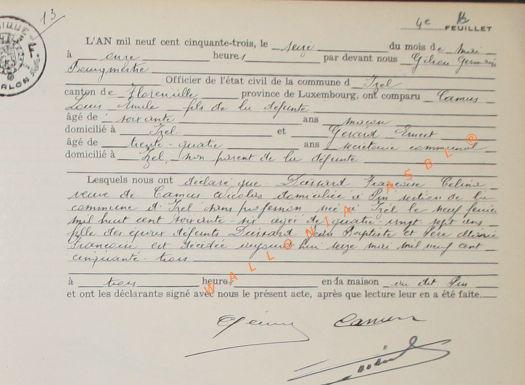 13
4e B
FEUILLET
L'AN mil neuf cent cinquante-trois, le seize du mois de mars
à onze heures par devant nous Gilson Germain
Bourgmestre Officier de l'état civil de la commune d Izel
canton de Florenville province de Luxembourg, ont comparu Camus
Louis Emile fils de la défunte
âgé de soixante ans maçon
domicilié à Izel et Gérard Ernest
âgé de trente-quatre ans secrétaire communal
domicilié à Izel, non parent de la défunte
Lesquels nous ont déclaré que Françoise Céline
veuve de Camus Nicolas domiciliée à Pin section de la
commune d'Izel sans profession née à Izel le neuf
mil huit cent soixante six âgée de quatre vingt sept ans
fille des époux défunts Jean Baptiste et
Françoise est décédée aujourd'hui seize mars mil neuf cent
cinquante-trois
à trois heures en da maison au dit Pin
et ont les déclarants signé avec nous le présent acte, après que lecture leur en a été faite.
Camus
WALLONIA ASBL ©